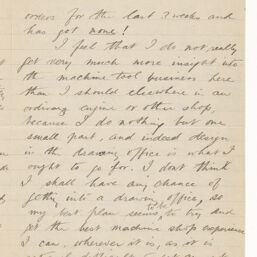 orders for the last 2 weeks and
has got none!
I feel that I do not really
get very much more insight into
the machine tool business here
than I should elsewhere in an
ordinary engine or other shop,
because I do nothing but one
small part, and indeed design
in the drawing office is what I
ought to go for. I don't think
I shall have any chance of
getting into a drawing office, so
my best plan seems to be to try and
get the best machine shop experience
I can, wherever it is, as or is